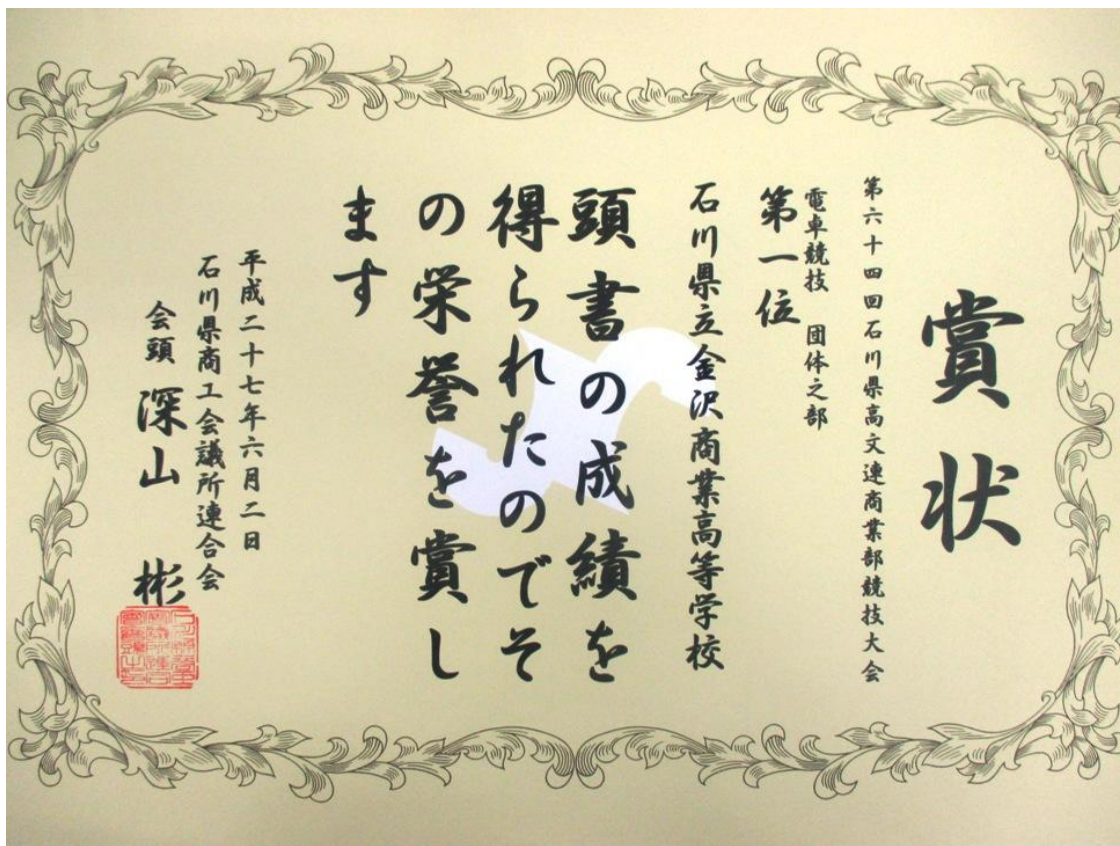 賞状
第六十四回石川県高文連商業部競技大会
電卓競技 団体之部
第一位
石川県立金沢商業高等学校
頭書の成績を
得られたのでそ
の栄誉を賞し
ます
平成二十七年六月二日
石川県商工会議所連合会
会頭 深山 彬